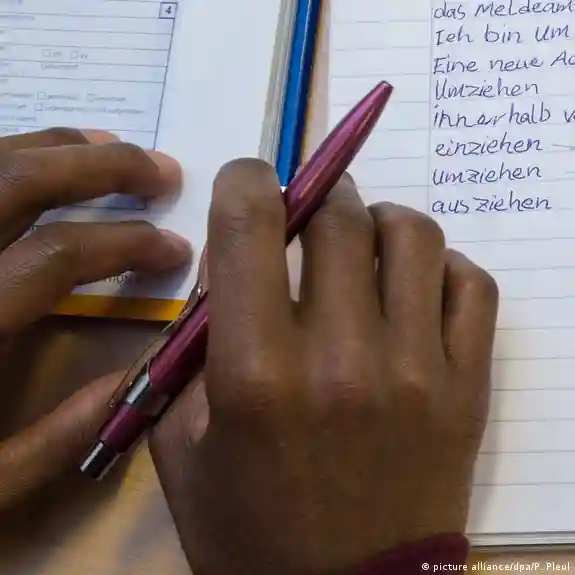 4
das Meldeam
Ich bin um
Eine neue Ad
Umziehen
innerhalb v
einziehen
umziehen
ausziehen
© picture alliance/dpa/P. Pleul